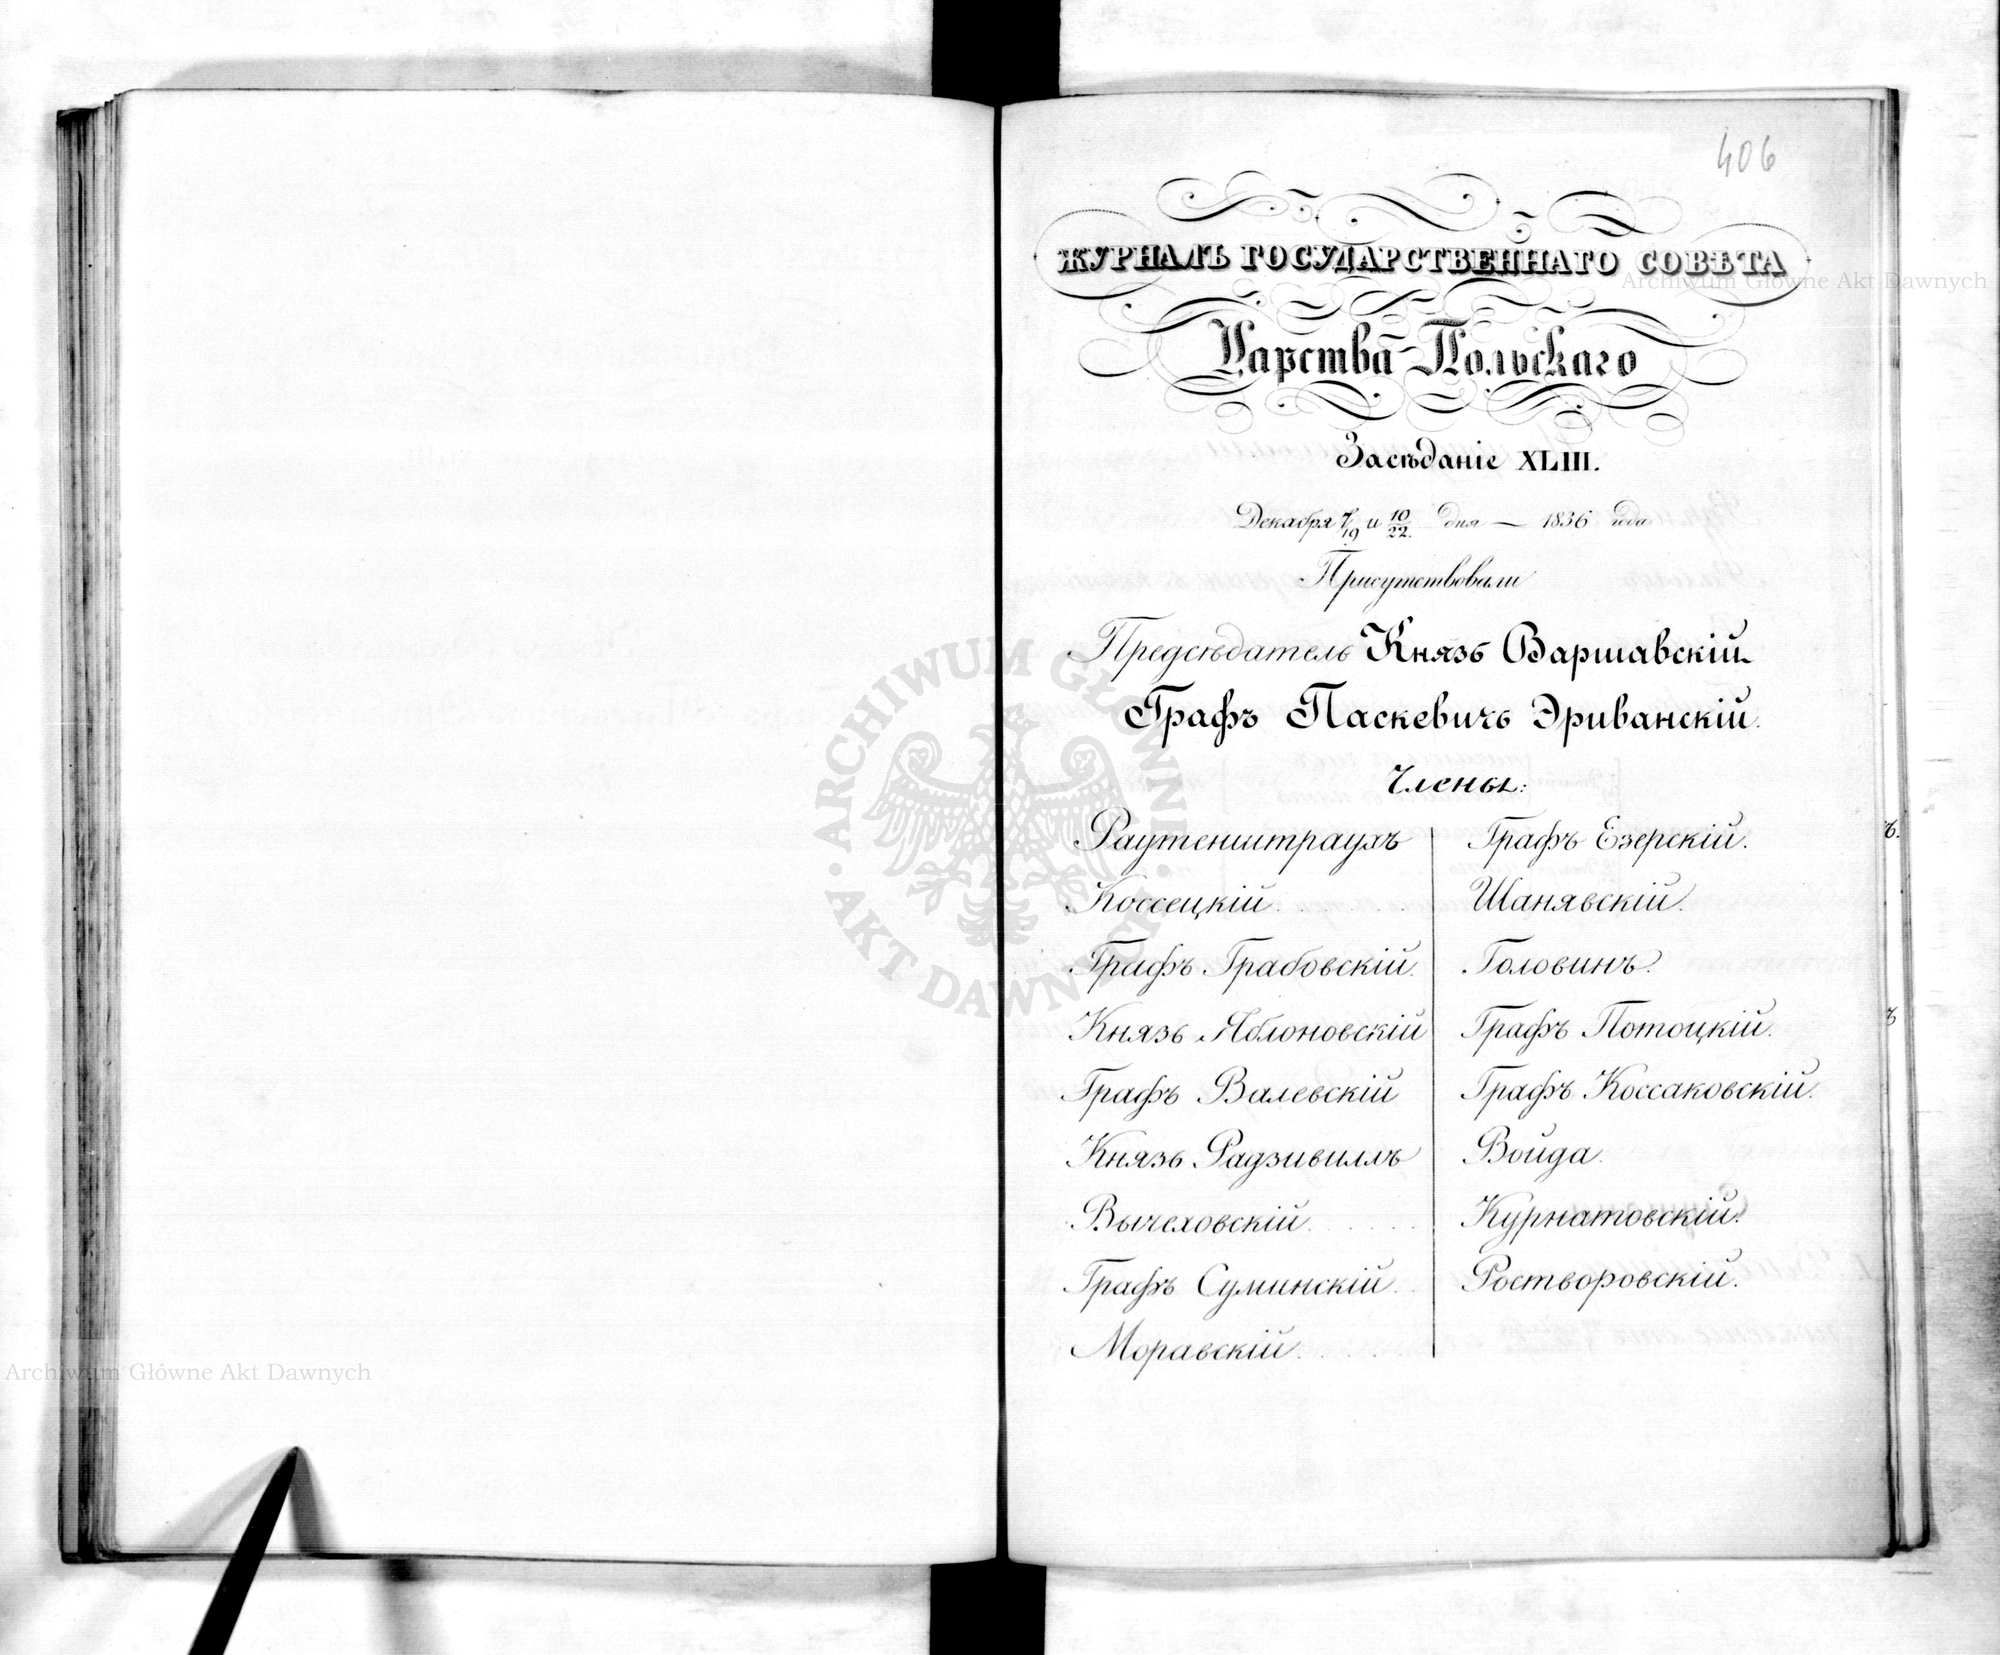 406
ЖУРНАЛЪ ГОСУДАРСТВЕННАГО СОВѢТА
Царства Польскаго
Засѣданіе XLIII.
Декабря 7/19 и 10/22. дня — 1836 года
Присутствовали
Предсѣдатель Князь Варшавскій
Графъ Паскевичь Эриванскій.
Члены:
Раутенштраухъ
Коссецкій
Графъ Грабовскій.
Князь Яблоновскій
Графъ Валевскій
Князь Радзивиллъ
Вычеховскій
Графъ Суминскій
Моравскій
Графъ Езерскій.
Шанявскій.
Головинъ.
Графъ Потоцкій.
Графъ Коссаковскій.
Войда.
Курнатовскій.
Ростворовскій.
ъ.
ъ
Archiwum Główne Akt Dawnych
ARCHIWUM GŁÓWNE · AKT DAWNYCH ·
Archiwum Główne Akt Dawnych